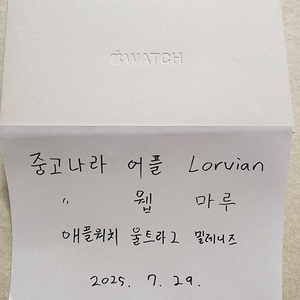 WATCH
중고나라 어플 Lorvian
〃 웹 마루
애플워치 울트라2 밀레니즈
2025. 7. 29.